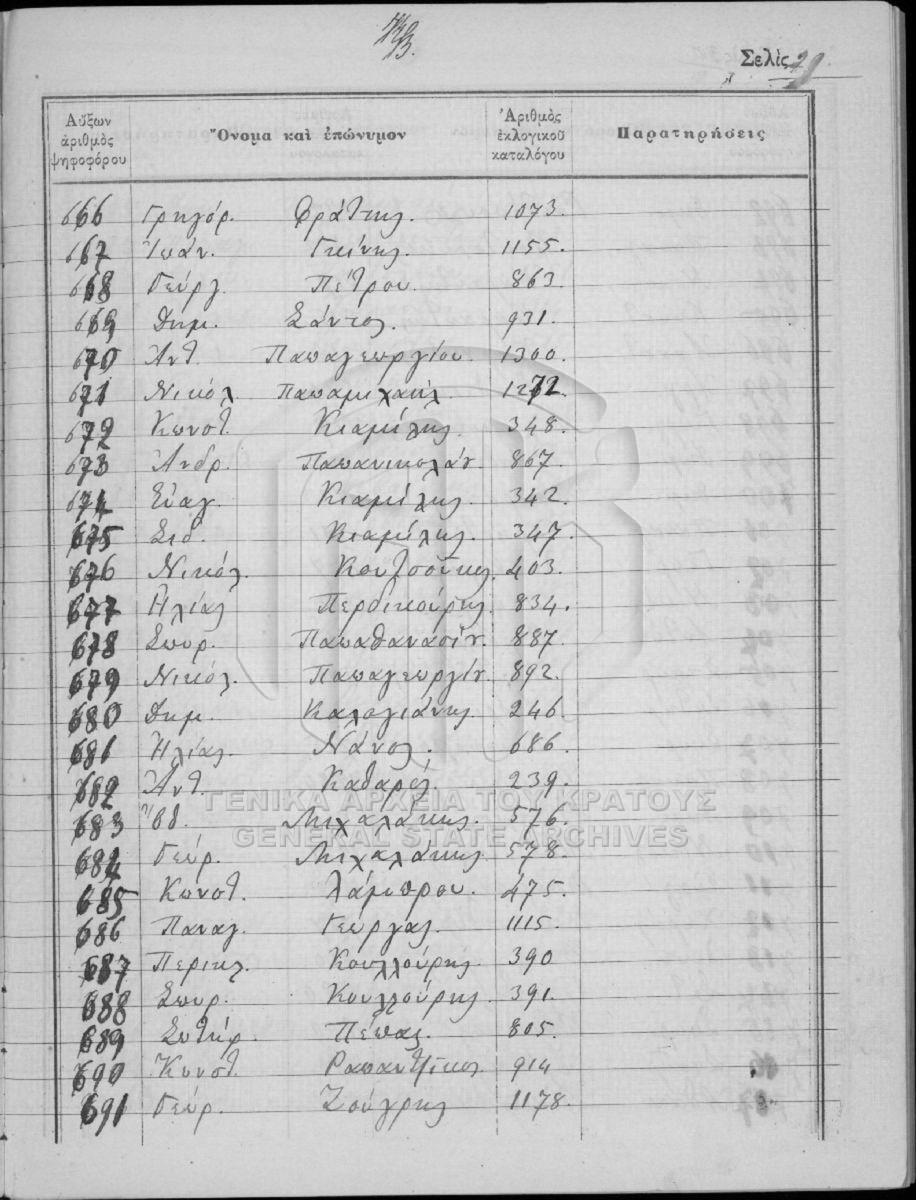 Σελὶς 29
Αὔξων ἀριθμὸς ψηφοφόρου Ὄνομα καὶ ἐπώνυμον Ἀριθμὸς ἐκλογικοῦ καταλόγου Παρατηρήσεις
666 Γρηγόρ. Φράτης. 1073.
667 Ἰωάν. 1155.
668 Γεώργ. Πέτρου. 863.
669 Δημ. Σάντος. 931.
670 Ἀντ. Παπαγεωργίου. 1300.
671 Νικόλ. Παπαμιχαήλ 1272.
672 Κωνστ. Κιαμίλης. 348.
673 Ἀνδρ. Παπανικολάου 867.
674 Εὐαγ. Κιαμίλης. 342.
675 Σιδ. Κιαμίλης. 347.
676 Νικόλ. Κουτσούκος. 403.
677 Ἠλίας Περδικούρης. 834.
678 Σπυρ. Παπαθανασίου. 887.
679 Νικόλ. Παπαγεωργίου 892.
680 Δημ. Καλογιάνης. 246.
681 Ἠλίας. Νάνος. 686.
682 Ἀντ. Καθαρός. 239.
683 Μιχαλάκης. 576.
684 Γεώρ. Μιχαλάκης 578.
685 Κωνστ. Λάμπρου. 475.
686 Παναγ. Γεώργας. 1115.
687 Περικλ. Κουλλούρης. 390
688 Σπυρ. Κουλλούρης. 391.
689 Σωτήρ. Πέππας. 805.
690 Κωνστ. Ραπαντζίκος. 914
691 Γεώρ. Ζούγρης 1178.
ΓΕΝΙΚΑ ΑΡΧΕΙΑ ΤΟΥ ΚΡΑΤΟΥΣ
GENERAL STATE ARCHIVES